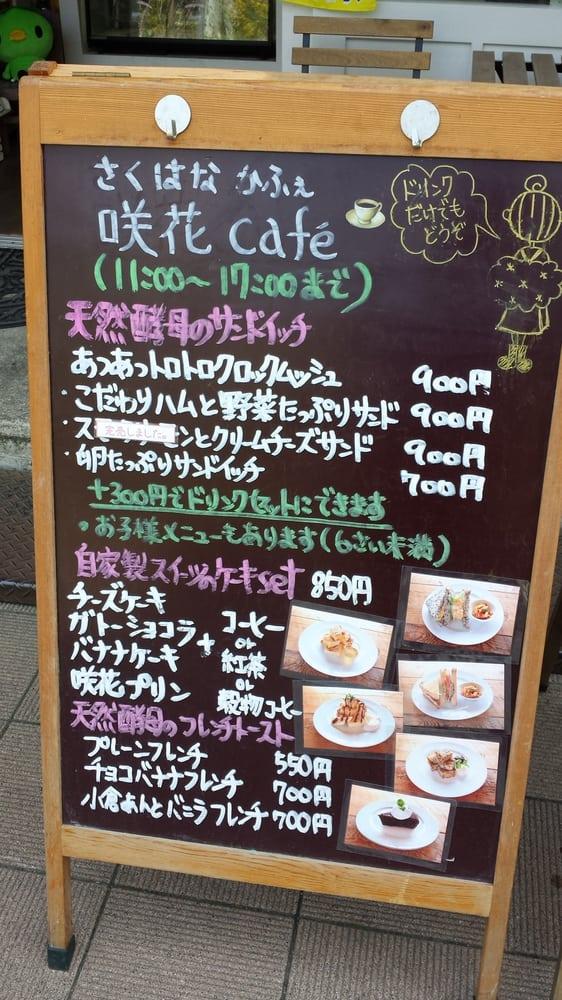 さくはな かふぇ
咲花 café
(11:00〜17:00まで)
ドリンク
だけでも
どうぞ
天然酵母のサンドイッチ
あつあつトロトロクロックムッシュ 900円
・こだわりハムと野菜たっぷりサンド 900円
・ス
完売しました。
ンとクリームチーズサンド 900円
・卵たっぷりサンドイッチ 700円
+300円でドリンクセットにできます
・お子様メニューもあります(6さい未満)
自家製スイーツのケーキset 850円
チーズケーキ
ガトーショコラ
バナナケーキ
咲花プリン
+
コーヒー
or
紅茶
or
穀物コーヒー
天然酵母のフレンチトースト
プレーンフレンチ 550円
チョコバナナフレンチ 700円
小倉あんとバニラフレンチ 700円